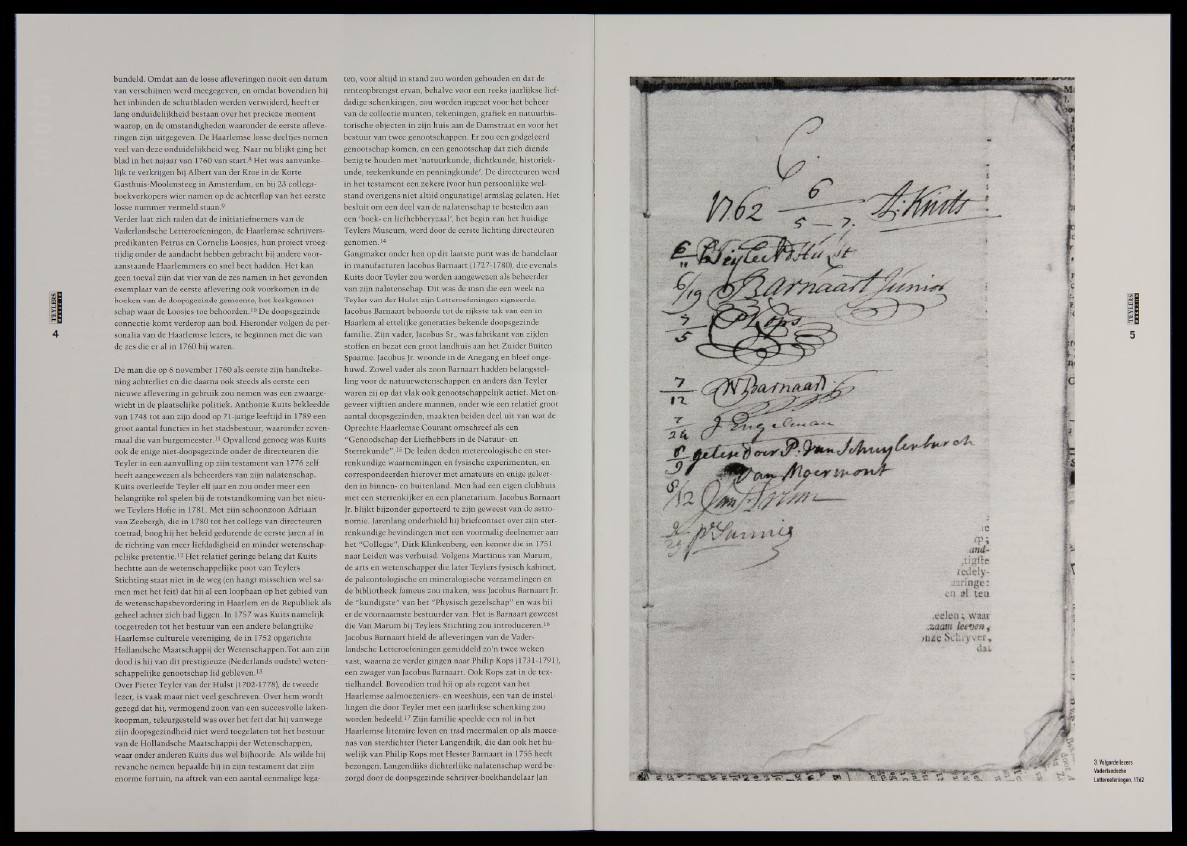 bundeld. Omdat aan de losse afleveringen nooit een datum
van verschijnen werd meegegeven, en omdat bovendien bij
het inbinden de schutbladen werden verwijderd, heeft er
lang onduidelijkheid bestaan over het precieze moment
waarop, en de omstandigheden waaronder de eerste afleve-
ringen zijn uitgegeven. De Haarlemse losse deeltjes nemen
veel van deze onduidelijkheid weg. Naar nu blijkt ging het
blad in het najaar van 1760 van start.8 Het was aanvanke-
lijk te verkrijgen bij Albert van der Kroe in de Korte
Gasthuis-Moolensteeg in Amsterdam, en bij 23 collega-
boekverkopers wier namen op de achterflap van het eerste
losse nummer vermeld staan.9
Verder laat zich raden dat de initiatiefnemers van de
Vaderlandsche Letteroefeningen, de Haarlemse schrijvers-
predikanten Petrus en Cornelis Loosjes, hun project vroeg-
tijdig onder de aandacht hebben gebracht bij andere voor-
aanstaande Haarlemmers en snel beet hadden. Het kan
geen toeval zijn dat vier van de zes namen in het gevonden
exemplaar van de eerste aflevering ook voorkomen in de
boeken van de doopsgezinde gemeente, het kerkgenoot-
schap waar de Loosjes toe behoorden.10 De doopsgezinde
connectie komt verderop aan bod. Hieronder volgen de per-
sonalia van de Haarlemse lezers, te beginnen met die van
de zes die er al in 1760 bij waren.
De man die op 6 november 1760 als eerste zijn handteke-
ning achterliet en die daarna ook steeds als eerste een
nieuwe aflevering in gebruik zou nemen was een zwaarge-
wicht in de plaatselijke politiek. Anthonie Kuits bekleedde
van 1748 tot aan zijn dood op 71-jarige leeftijd in 1789 een
groot aantal functies in het stadsbestuur, waaronder zeven-
maal die van burgemeester.11 Opvallend genoeg was Kuits
ook de enige niet-doopsgezinde onder de directeuren die
Teyler in een aanvulling op zijn testament van 1776 zelf
heeft aangewezen als beheerders van zijn nalatenschap.
Kuits overleefde Teyler elf jaar en zou onder meer een
belangrijke rol spelen bij de totstandkoming van het nieu-
we Teylers Hofje in 1781. Met zijn schoonzoon Adriaan
van Zeebergh, die in 1780 tot het college van directeuren
toetrad, boog hij het beleid gedurende de eerste jaren af in
de richting van meer liefdadigheid en minder wetenschap-
pelijke pretentie.12 Het relatief geringe belang dat Kuits
hechtte aan de wetenschappelijke poot van Teylers
Stichting staat niet in de weg (en hangt misschien wel sa-
men met het feit) dat hij al een loopbaan op het gebied van
de wetenschapsbevordering in Haarlem en de Republiek als
geheel achter zich had liggen. In 1757 was Kuits namelijk
toegetreden tot het bestuur van een andere belangrijke
Haarlemse culturele vereniging, de in 1752 opgerichte
Hollandsche Maatschappij der Wetenschappen.Tot aan zijn
dood is hij van dit prestigieuze (Nederlands oudste) weten-
schappelijke genootschap lid gebleven.13
Over Pieter Teyler van der Hulst (1702-1778), de tweede
lezer, is vaak maar niet veel geschreven. Over hem wordt
gezegd dat hij, vermogend zoon van een succesvolle laken-
koopman, teleurgesteld was over het feit dat hij vanwege
zijn doopsgezindheid niet werd toegelaten tot het bestuur
van de Hollandsche Maatschappij der Wetenschappen,
waar onder anderen Kuits dus wel bijhoorde. Als wilde hij
revanche nemen bepaalde hij in zijn testament dat zijn
enorme fortuin, na aftrek van een aantal eenmalige lega-
ten, voor altijd in stand zou worden gehouden en dat de
renteopbrengst ervan, behalve voor een reeks jaarlijkse lief-
dadige schenkingen, zou worden ingezet voor het beheer
van de collectie munten, tekeningen, grafiek en natuurhis-
torische objecten in zijn huis aan de Damstraat en voor het
bestuur van twee genootschappen. Er zou een godgeleerd
genootschap komen, en een genootschap dat zich diende
bezig te houden met 'natuurkunde, dichtkunde, historiek-
unde, teekenkunde en penningkunde'. De directeuren werd
in het testament een zekere (voor hun persoonlijke wel-
stand overigens niet altijd ongunstige) armslag gelaten. Het
besluit om een deel van de nalatenschap te besteden aan
een 'boek- en liefhebberyzaal', het begin van het huidige
Teylers Museum, werd door de eerste lichting directeuren
genomen.14
Gangmaker onder hen op dit laatste punt was de handelaar
in manufacturen Jacobus Barnaart (1727-1780), die evenals
Kuits door Teyler zou worden aangewezen als beheerder
van zijn nalatenschap. Dit was de man die een week na
Teyler van der Hulst zijn Letteroefeningen signeerde.
Jacobus Barnaart behoorde tot de rijkste tak van een in
Haarlem al ettelijke generaties bekende doopsgezinde
familie. Zijn vader, Jacobus Sr., was fabrikant van zijden
stoffen en bezat een groot landhuis aan het Zuider Buiten
Spaarne. Jacobus Jr. woonde in de Anegang en bleef onge-
huwd. Zowel vader als zoon Barnaart hadden belangsstel-
ling voor de natuurwetenschappen en anders dan Teyler
waren zij op dat vlak ook genootschappelijk actief. Met on-
geveer vijftien andere mannen, onder wie een relatief groot
aantal doopsgezinden, maakten beiden deel uit van wat de
Oprechte Haarlemse Courant omschreef als een
"Genootschap der Liefhebbers in de Natuur- en
Sterrekunde".15 De leden deden metereologische en ster-
renkundige waarnemingen en fysische experimenten, en
correspondeerden hierover met amateurs en enige geleer-
den in binnen- en buitenland. Men had een eigen clubhuis
met een sterrenkijker en een planetarium. Jacobus Barnaart
Jr. blijkt bijzonder geporteerd te zijn geweest van de astro-
nomie. Jarenlang onderhield hij briefcontact over zijn ster-
renkundige bevindingen met een voormalig deelnemer aan
het "Collegie", Dirk Klinkenberg, een kenner die in 1751
naar Leiden was verhuisd. Volgens Martinus van Marum,
de arts en wetenschapper die later Teylers fysisch kabinet,
de paleontologische en mineralogische verzamelingen en
de bibliotheek fameus zou maken, was Jacobus Barnaart Jr.
de "kundigste" van het "Physisch gezelschap" en was hij
er de voornaamste bestuurder van. Het is Barnaart geweest
die Van Marum bij Teylers Stichting zou introduceren.16
Jacobus Barnaart hield de afleveringen van de Vader-
landsche Letteroefeningen gemiddeld zo'n twee weken
vast, waarna ze verder gingen naar Philip Kops (1731-1791),
een zwager van Jacobus Barnaart. Ook Kops zat in de tex-
tielhandel. Bovendien trad hij op als regent van het
Haarlemse aalmoezeniers- en weeshuis, een van de instel-
lingen die door Teyler met een jaarlijkse schenking zou
worden bedeeld.17 Zijn familie speelde een rol in het
Haarlemse litemire leven en trad meermalen op als maece-
nas van sterdichter Pieter Langendijk, die dan ook het hu-
welijk van Philip Kops met Hester Barnaart in 1755 heeft
bezongen. Langendijks dichterlijke nalatenschap werd be-
zorgd door de doopsgezinde schrijver-boekhandelaar Jan
TEYLERS
4
6
1762 6/5 — 7. A: Kuits
6/11 P Teyler vd Hulst
6/19 J Barnaart Junior
7/5 P Kops
7/12 W Barnaart
7/24 J Engelman
8/9 gelesen door P. van Schuylenburch
van Moermont
8/12 Jan
and-
tigste
redely-
en al ten
eelen; waar
zaam leeven,
onze Schryver,
dat
TEYLERS
5
3. Volgorde lezers
Vaderlandsche
Letteroefeningen, 1762